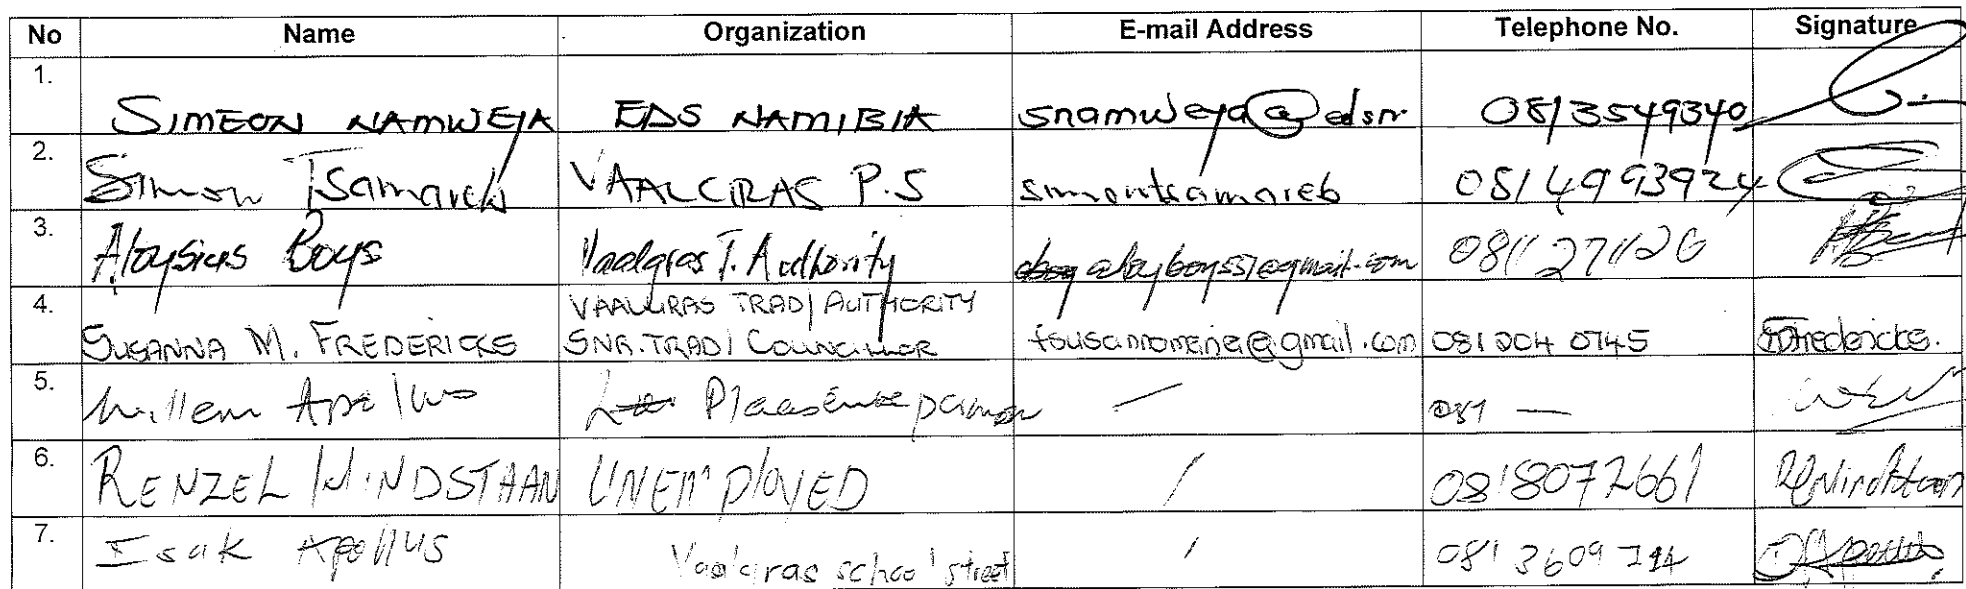 No Name Organization E-mail Address Telephone No. Signature
1. SIMEON NAMWEYA EDS NAMIBIA snamweya@edsn 0813549340
2. Simon Tsamareb VAALGRAS P.S simontsamareb 0814993924
3. Aloysius Boys Vaalgras T. Authority aloyboys57@gmail.com 0811271126
4. VAALGRAS TRAD/ AUTHORITY
SUSANNA M. FREDERICKS SNR. TRAD/ COUNCILLOR tousannameine@gmail.com 081 204 0745 Fredericks.
5. Willem Apollus 081 —
6. RENZEL WINDSTAAN UNEMPLOYED / 0818072661 Windstaan
7. Isak Apollus Vaalgras school street / 0813609714 Apollus